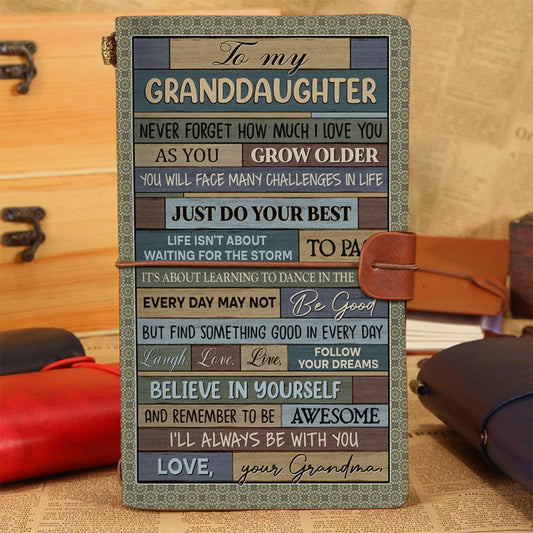 To my
GRANDDAUGHTER
NEVER FORGET HOW MUCH I LOVE YOU
AS YOU GROW OLDER
YOU WILL FACE MANY CHALLENGES IN LIFE
JUST DO YOUR BEST
LIFE ISN'T ABOUT
WAITING FOR THE STORM
TO PA
IT'S ABOUT LEARNING TO DANCE IN THE
EVERY DAY MAY NOT Be Good
BUT FIND SOMETHING GOOD IN EVERY DAY
Laugh, Love, Live,
FOLLOW
YOUR DREAMS
BELIEVE IN YOURSELF
AND REMEMBER TO BE AWESOME
I'LL ALWAYS BE WITH YOU
LOVE, your Grandma,